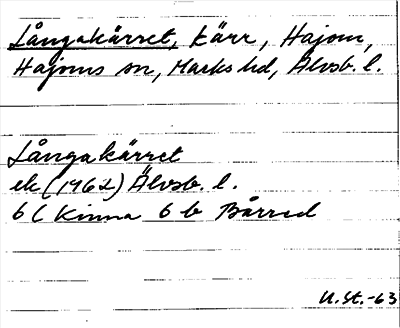 Långakärret, kärr, Hajom,
Hajoms sn, Marks hd, Älvsb. l.
Långakärret
ek (1962) Älvsb. l.
6 C Kinna 6 b Bårred
U.St.-63